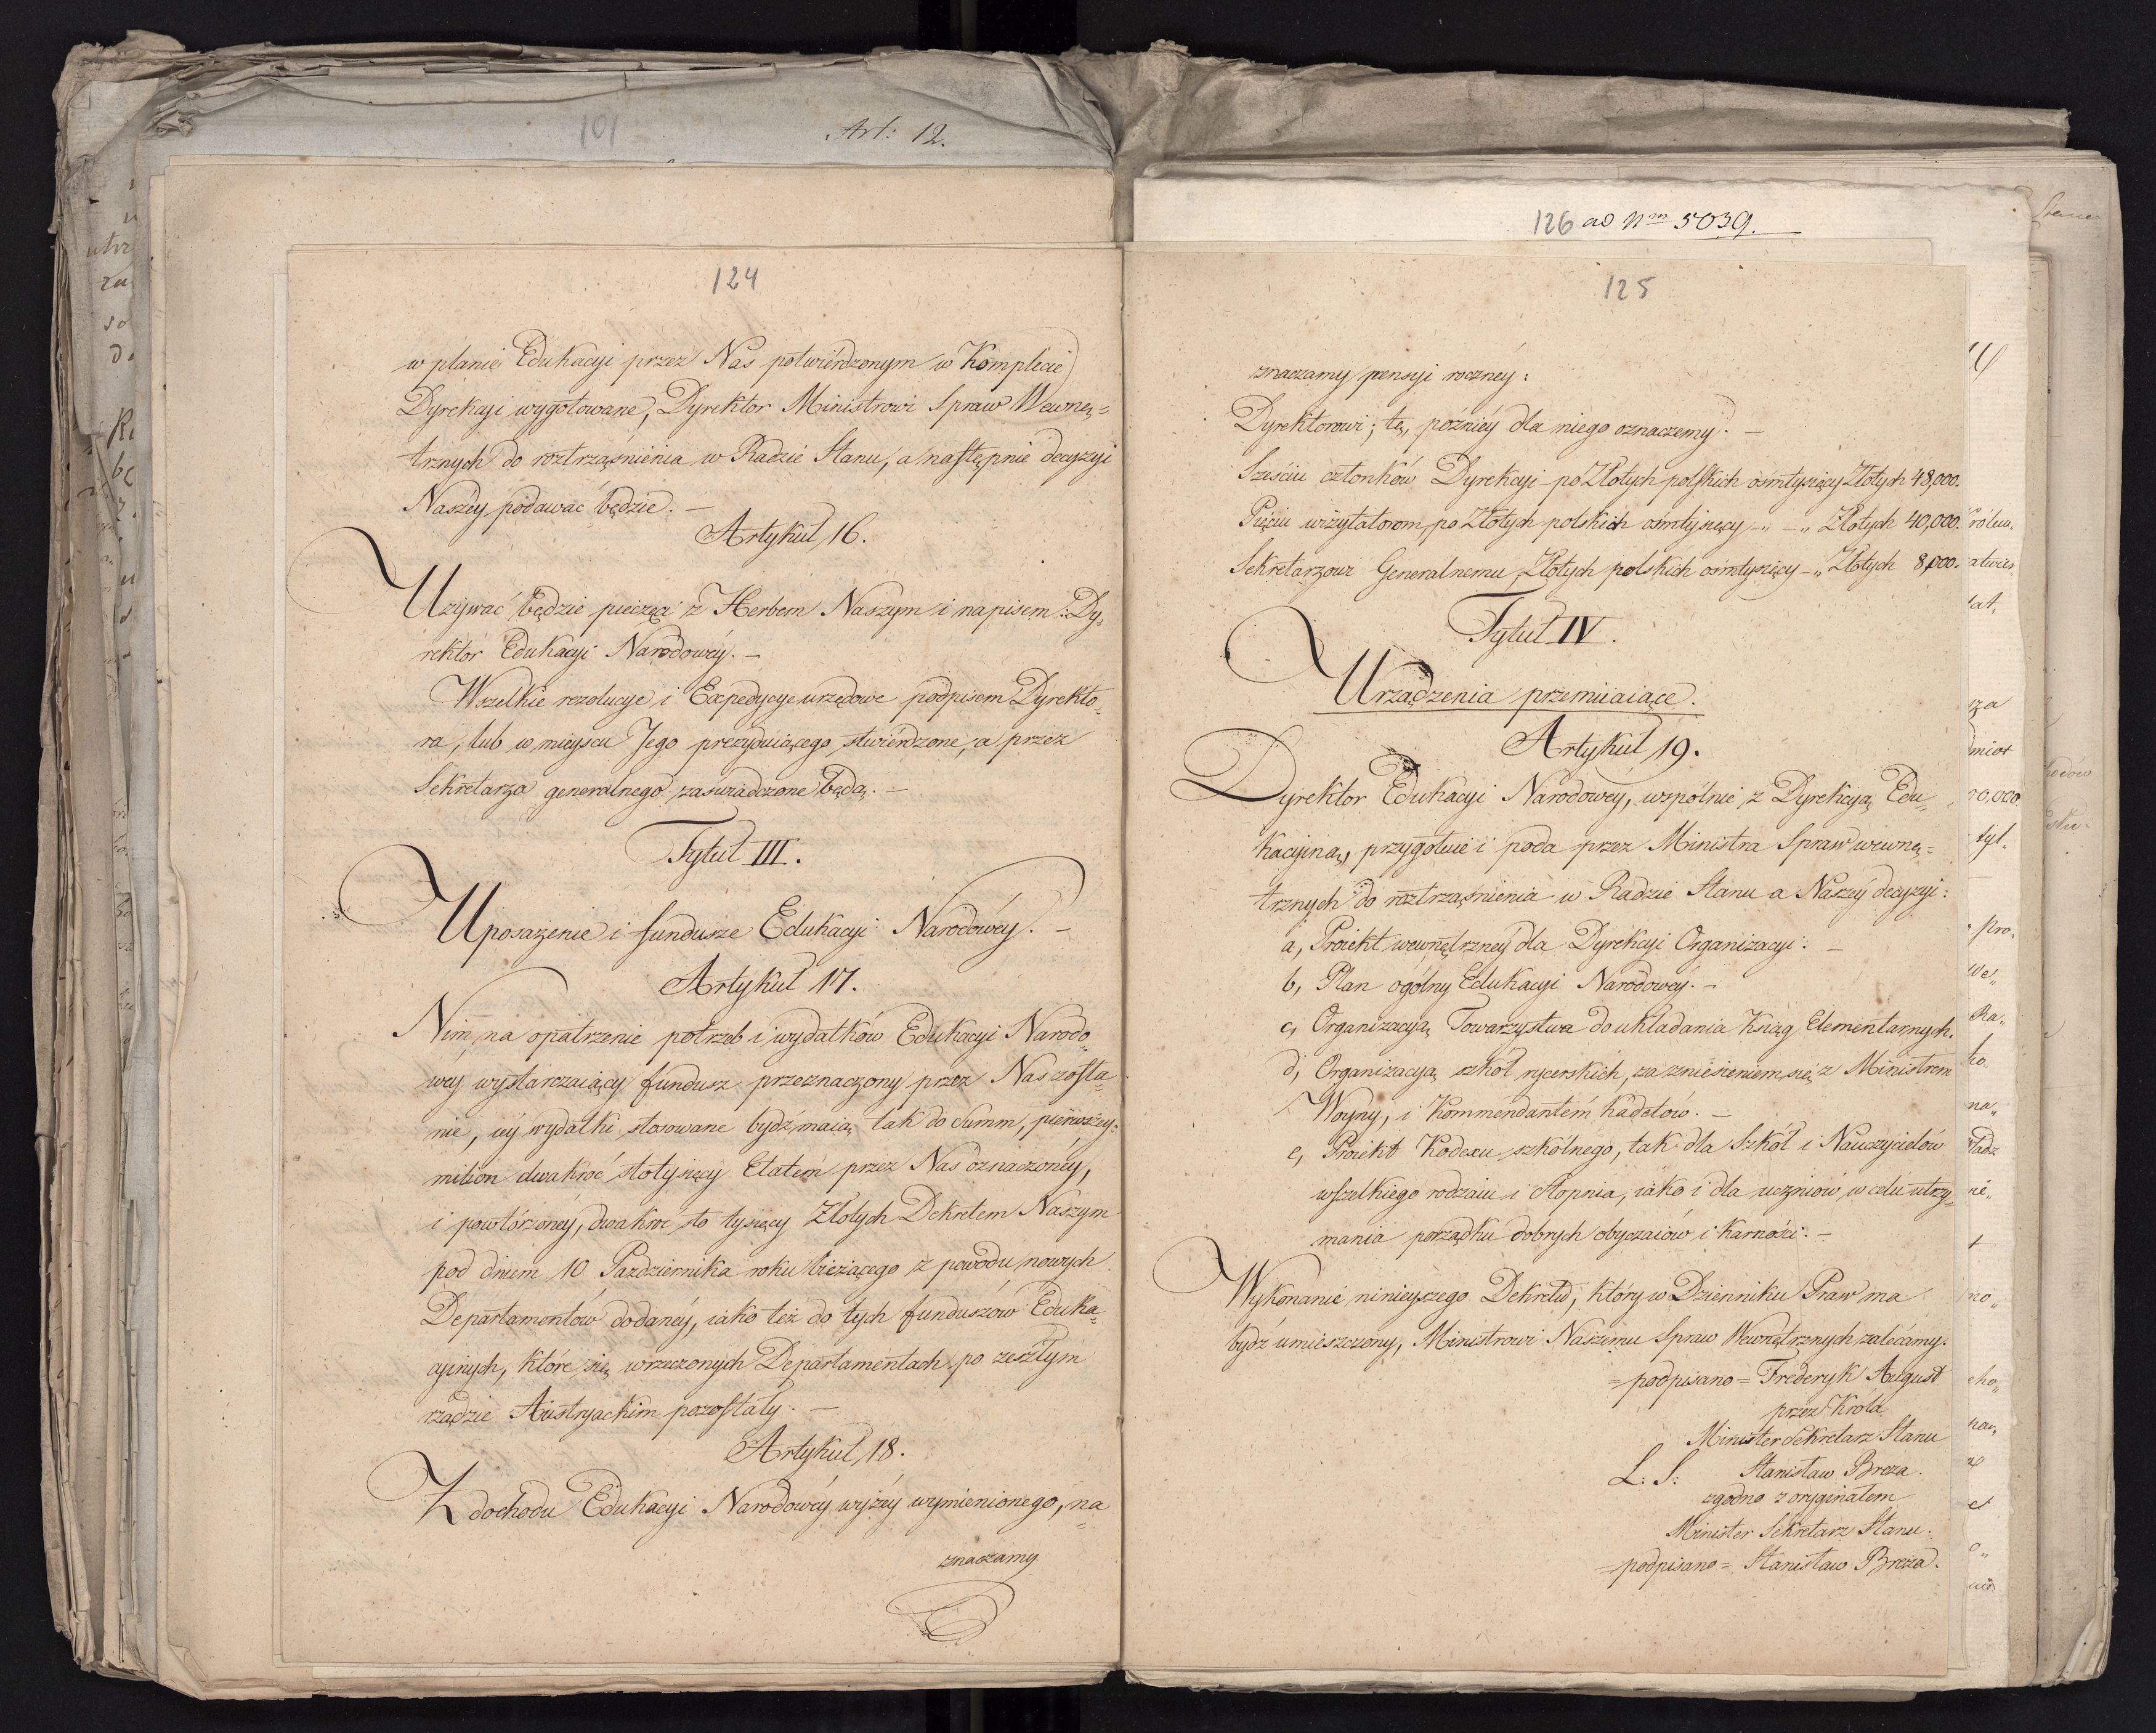 101
Art: 12.
124
w planie Edukacyi przez Nas potwiérdzonym w Komplecie
Dyrekcyi wygotowane, Dyrektor Ministrowi Spraw Wewnę=
trznych do roztrząśnienia w Radzie Stanu, a następnie decyzyi
Naszey podawać będzie. —
Artykuł 16.
Używać będzie pieczęci z Herbem Naszym i napisem: Dy„
rektor Edukacyi Narodowéy. —
Wszelkie rezolucye i Expedycye urzędowe podpisem Dyrekto„
ra, lub w mieyscu Jego prezyduiącego stwiérdzone, a przez
Sekretarza generalnego zaświadczone będą. —
Tytuł III.
Uposażenie i fundusze Edukacyi Narodowéy. —
Artykuł 17.
Nim na opatrzenie potrzeb i wydatków Edukacyi Narodo„
wey wystarczaiący fundusz przeznaczony przez Nas zosta=
nie, iéy wydatki stosowane bydź maią tak do Summ, pierwszey
milion dwakroć stotysięcy Etatem przez Nas oznaczonéy,
i powtórzonéy, dwakroć sto tysięcy Złotych Dekretem Naszym
pod dniem 10 Pazdziernika roku bieżącego z powodu nowych
Departamentów dodanéy, iako też do tych funduszów Eduka=
cyinych, które się w rzeczonych Departamentach po zeszłym
rządzie Austryackim pozostały. —
Artykuł 18.
Z dochodu Edukacyi Narodowéy wyżéy wymienionego, na=
znaczamy
126 ad Nm 5039.
125
znaczamy pensyi rocznéy:
Dyrektorowi; tę, późniéy dla niego oznaczemy. —
Sześciu członków Dyrekcyi po Złotych polskich ośmtysięcy Złotych 48,000.
Pięciu wizytatorom, po Złotych polskich ośmtysięcy —„—„ Złotych 40,000.
Sekretarzowi Generalnemu Złotych polskich ośmtysięcy —„ Złotych 8,000.
Tytuł IV.
Urządzenia przemiiaiące.
Artykuł 19.
Dyrektor Edukacyi Narodowéy, wspólnie z Dyrekcyą Edu„
kacyiną, przygotuie i poda przez Ministra Spraw wewnę=
trznych do roztrząśnienia w Radzie Stanu a Naszéy decyzyi:
a, Proiekt wewnętrznéy dla Dyrekcyi Organizacyi. —
b, Plan ogólny Edukacyi Narodowéy. —
c, Organizacyą Towarzystwa do układania Ksiąg Elementarnych.
d, Organizacyą szkół rycerskich, za zniesieniem się z Ministrem
Woyny, i Kommendantem Kadetów. —
e, Proiekt Kodexu szkólnego, tak dla Szkół i Nauczycielów
wszelkiego rodzaiu i stopnia, iako i dla uczniów, w celu utrzy„
mania porządku dobrych obyczaiów i karności. —
Wykonanie ninieyszego Dekretu, który w Dzienniku Praw ma
bydź umieszczony, Ministrowi Naszemu Spraw Wewnętrznych zalecamy.
= podpisano = Frederyk August
przez Króla
Minister Sekretarz Stanu
L: S: Stanisław Breza.
zgodno z oryginałem
Minister Sekretarz Stanu.
= podpisano = Stanisław Breza.